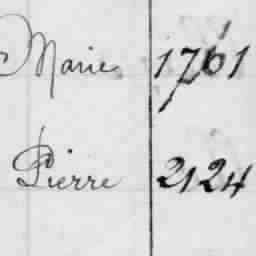 Marie 1761
Pierre 2124